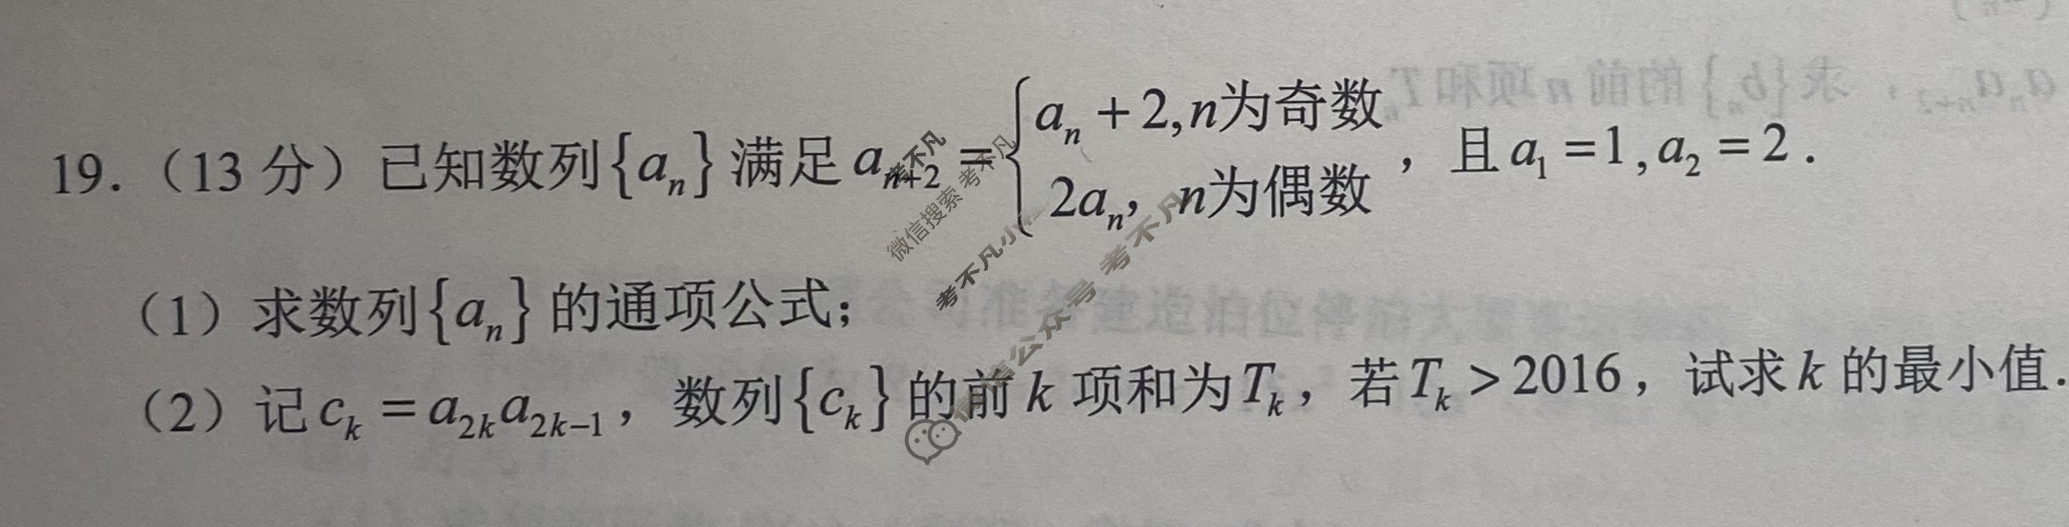 a_n a_{n+2}，求{b_n}的前n项和T_n
19.（13 分）已知数列{a_n}满足 a_{n+2} = { a_n + 2, n为奇数
2a_n, n为偶数 ，且 a_1 = 1, a_2 = 2 .
（1）求数列{a_n}的通项公式；
（2）记 c_k = a_{2k}a_{2k-1}，数列{c_k}的前 k 项和为 T_k，若 T_k > 2016，试求 k 的最小值.
考不凡
微信搜索 考不凡
考不凡小
公众号 考不凡